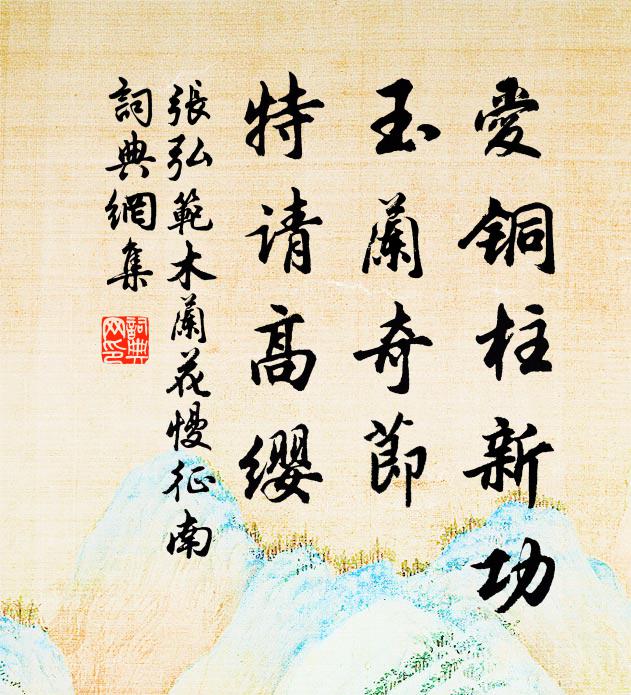 愛铜柱新功
玉蘭奇節
特请高缨
張弘範木蘭花慢征南
詞典網集
詞典
网印